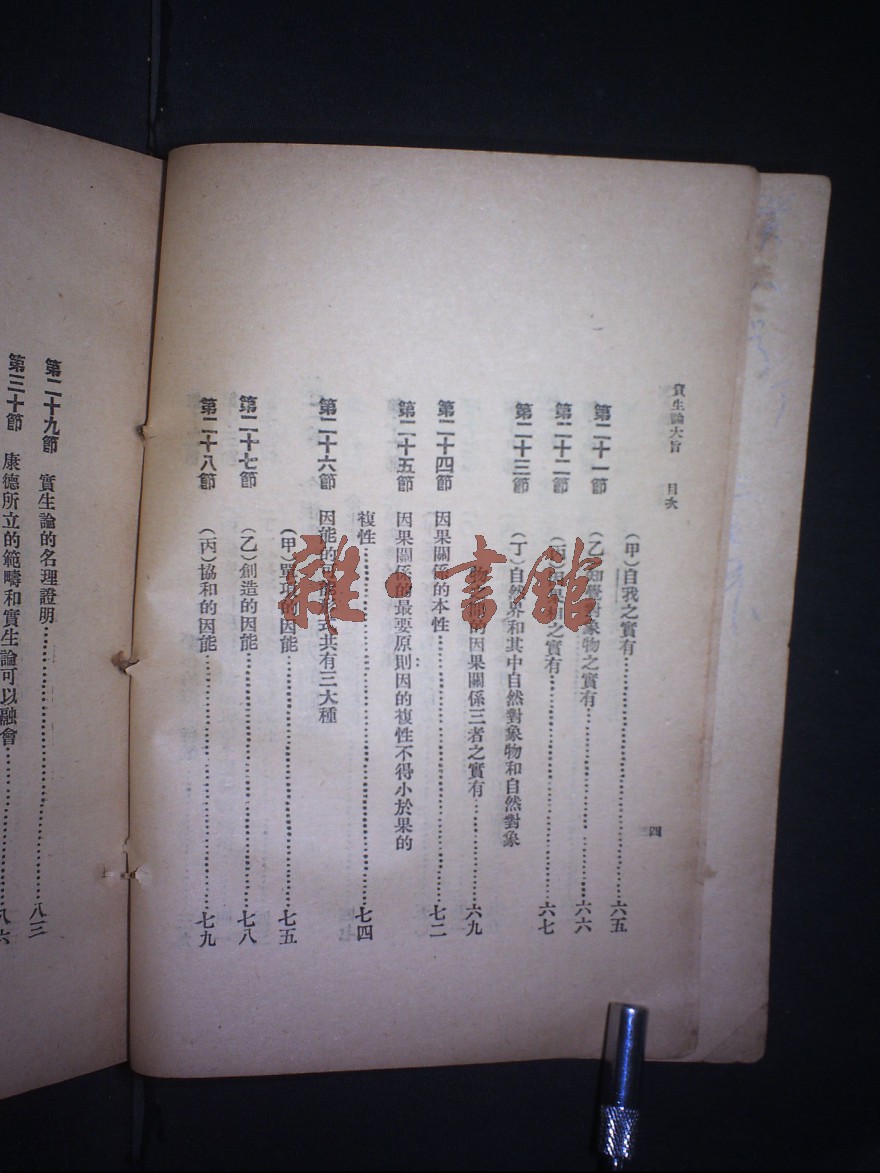 實生論大旨　目次
四
（甲）自我之實有……六五
第二十一節　（乙）知覺對象物之實有……六六
第二十二節　（丙）之實有……六七
第二十三節　（丁）自然界和其中自然對象物和自然對象
物之間的因果關係三者之實有……六九
第二十四節　因果關係的本性……七二
第二十五節　因果關係的最要原則因的複性不得小於果的
複性……七四
第二十六節　因能的可能形式共有三大種
（甲）單項的因能……七五
第二十七節　（乙）創造的因能……七八
第二十八節　（丙）協和的因能……七九
第二十九節　實生論的名理證明……八三
第三十節　康德所立的範疇和實生論可以融會……八六
雜·書館